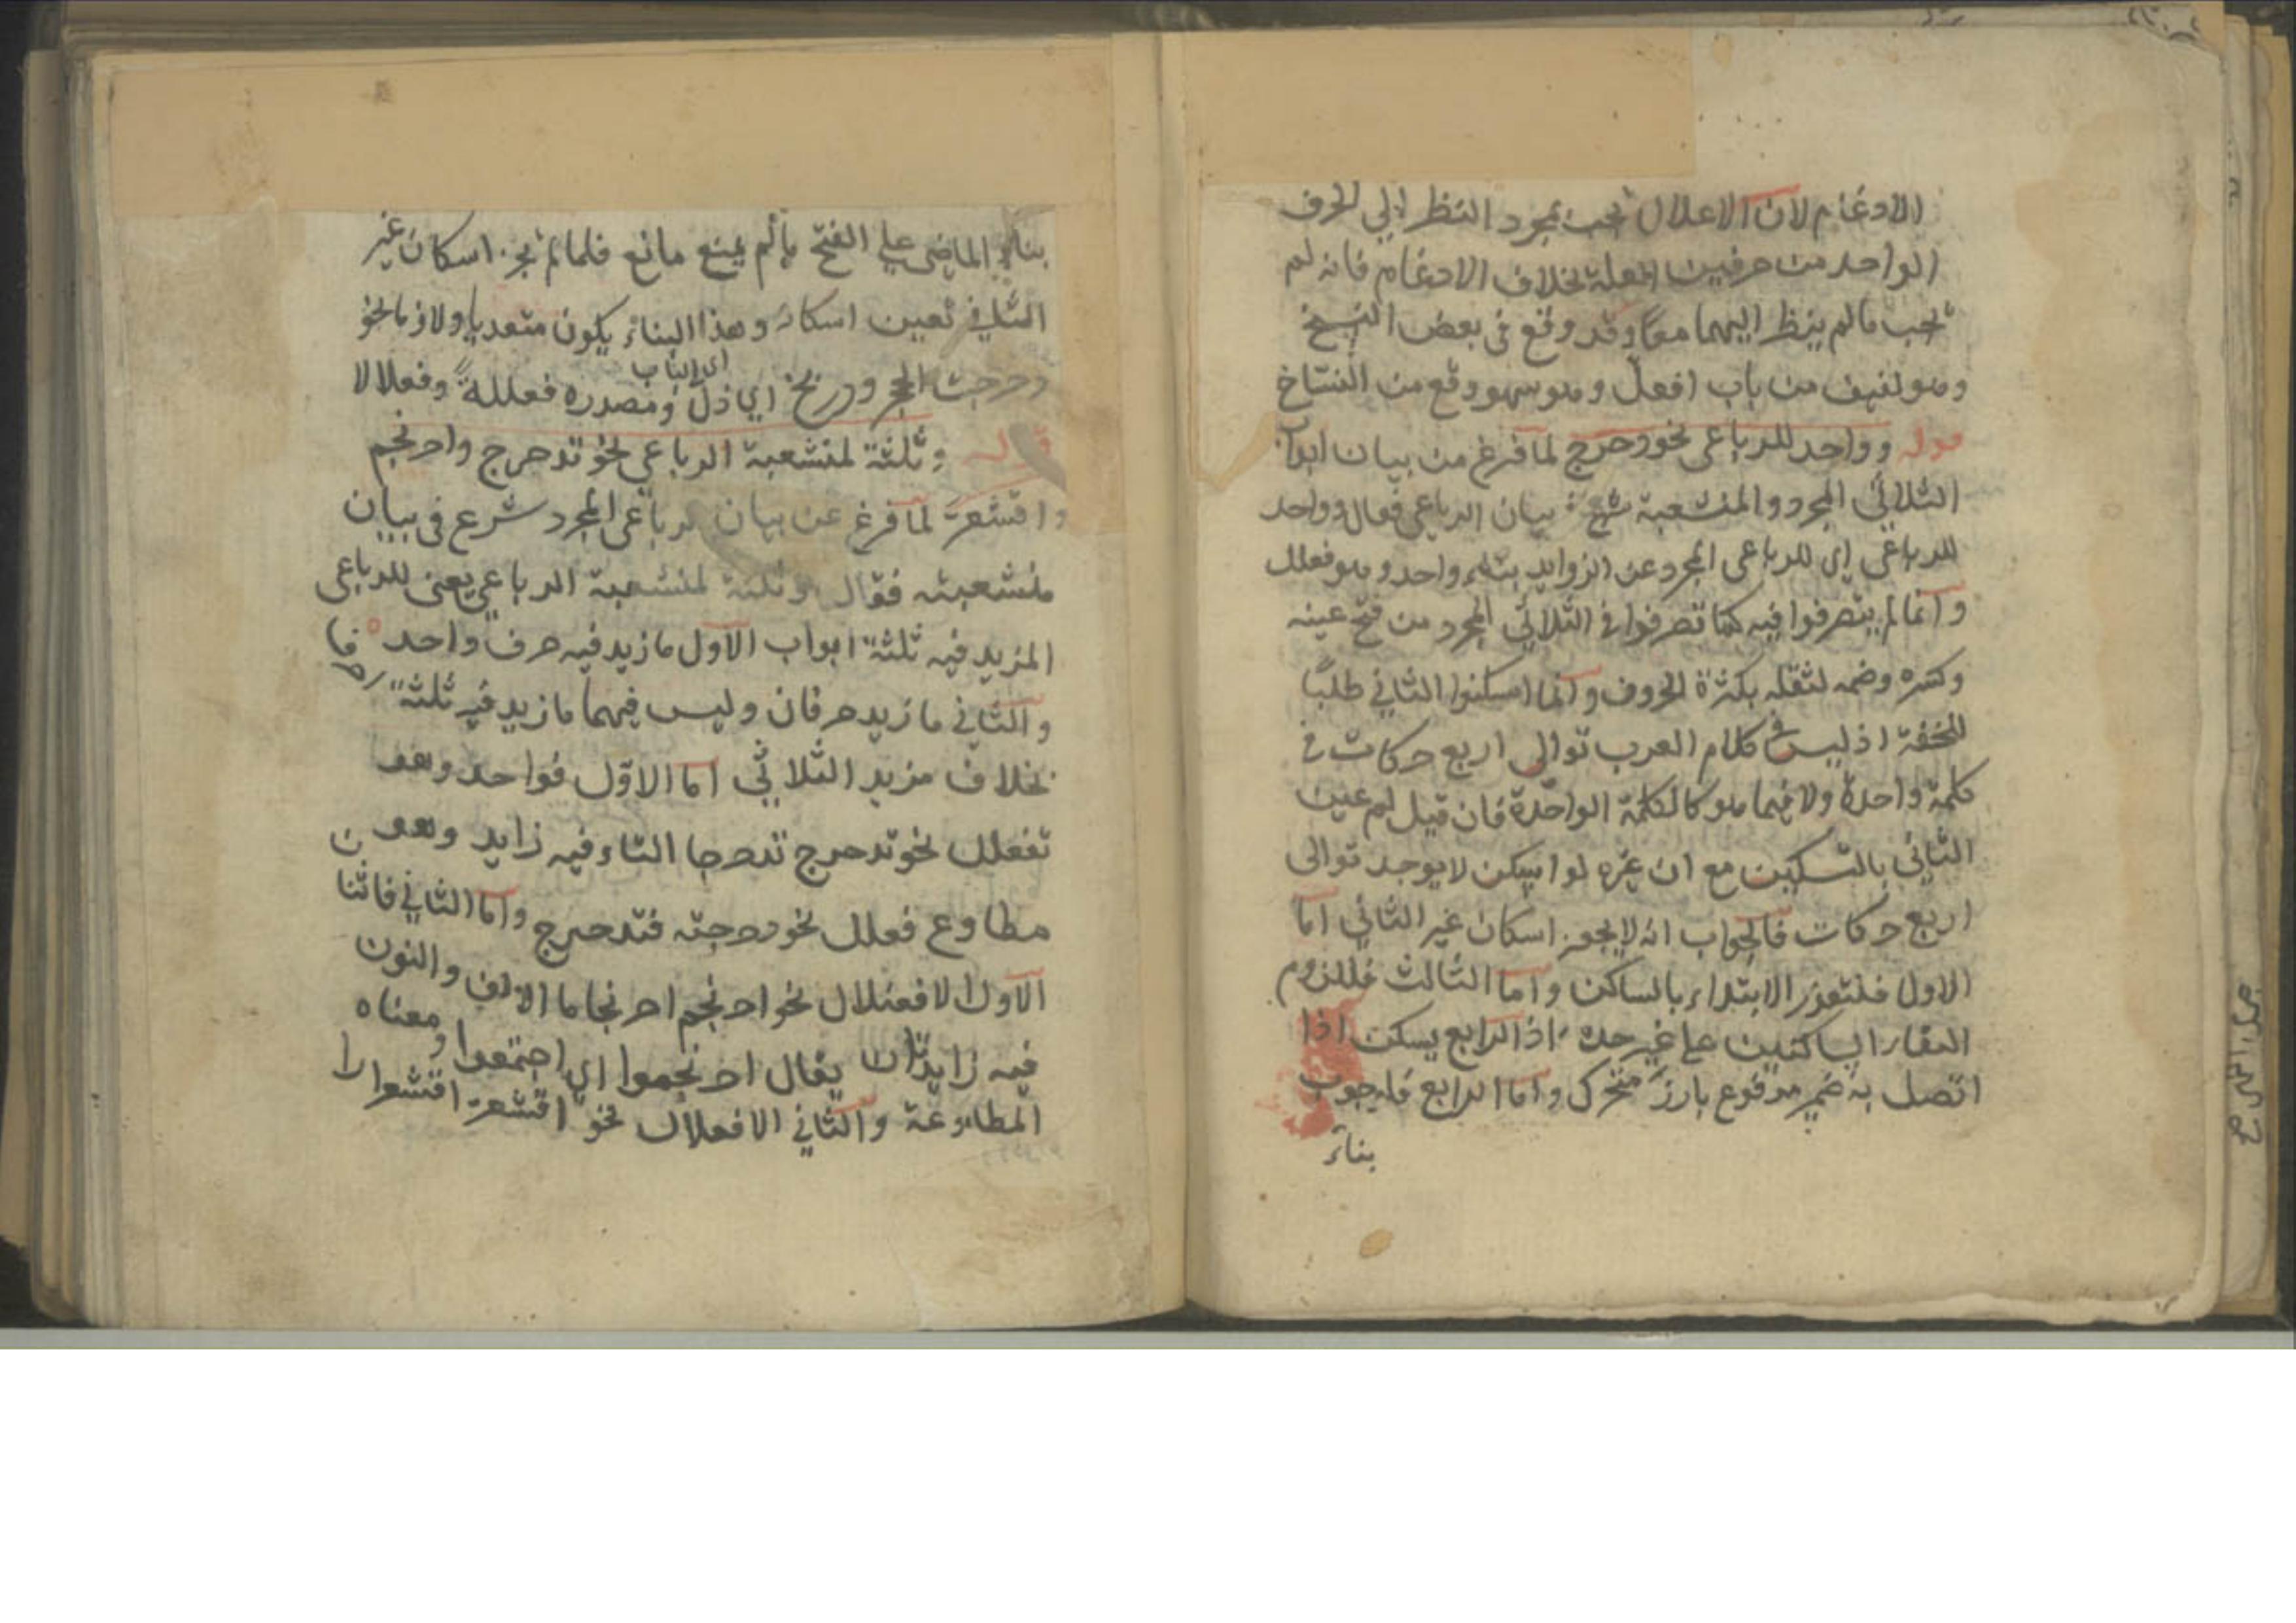 الادغام لان الاعلال يجب بمجرد النظر الي الحرف
الواحد من حرفين المعلة بخلاف الادغام فانه لم
يجب ما لم ينظر اليهما معًا وقد وقع في بعض النسخ
وهو لفيف من باب افعلّ وهو سهو وقع من النسّاخ
قوله وواحد للرباعي نحو دحرج لما فرغ من بيان ابواب
الثلاثي المجرد والمنشعبة شرع في بيان الرباعي فقال وواحد
للرباعي اي للرباعي المجرد عن الزوايد بناء واحد وهو فعلل
وانما لم يتصرفوا فيه كما تصرفوا في الثلاثي المجرد من فتح عينه
وكسره وضمه لثقله بكثرة الحروف وانما اسكنوا الثاني طلبًا
للخفة اذ ليس في كلام العرب توالى اربع حركات في
كلمة واحدة ولا فيما هو كالكلمة الواحدة فان قيل لم عين
الثاني بالتسكين مع ان غيره لو اسكن لا يوجد توالى
اربع حركات فالجواب انه لا يجوز اسكان غير الثاني اما
الاول فلتعذر الابتداء بالساكن واما الثالث فللزوم
التقاء الساكنين على غير حده اذ الرابع يسكن اذا
اتصل به ضمير مرفوع بارز متحرك واما الرابع فلوجوب
بناء
بناء الماضي علي الفتح ما لم يمنع مانع فلما لم يجز اسكان غير
الثاني تعين اسكانه وهذا البناء يكون متعديا ولازما نحو
دحرجت الحجر ودربخ اي ذلّ ومصدره فعللة وفعلالا
اي الباب
قوله وثلثة لمنشعبة الرباعي نحو تدحرج واحرنجم
واقشعرّ لما فرغ عن بيان الرباعي المجرد شرع في بيان
منشعبته فقال وثلثة لمنشعبة الرباعي يعني للرباعي
المزيد فيه ثلثة ابواب الاول ما زيد فيه حرف واحد
والثاني ما زيد حرفان وليس فيهما ما زيد فيه ثلثة
بخلاف مزيد الثلاثي اما الاوّل فواحد وهو
تفعلل نحو تدحرج تدحرجا التاء فيه زايد وهو
مطاوع فعلل نحو دحرجته فتدحرج واما الثاني فاثنان
الاول الافعنلال نحو احرنجم احرنجاما الالف والنون
فيه زايدتان يقال احرنجموا اي اجتمعوا ومعناه
المطاوعة والثاني الافعلال نحو اقشعرّ اقشعرارا